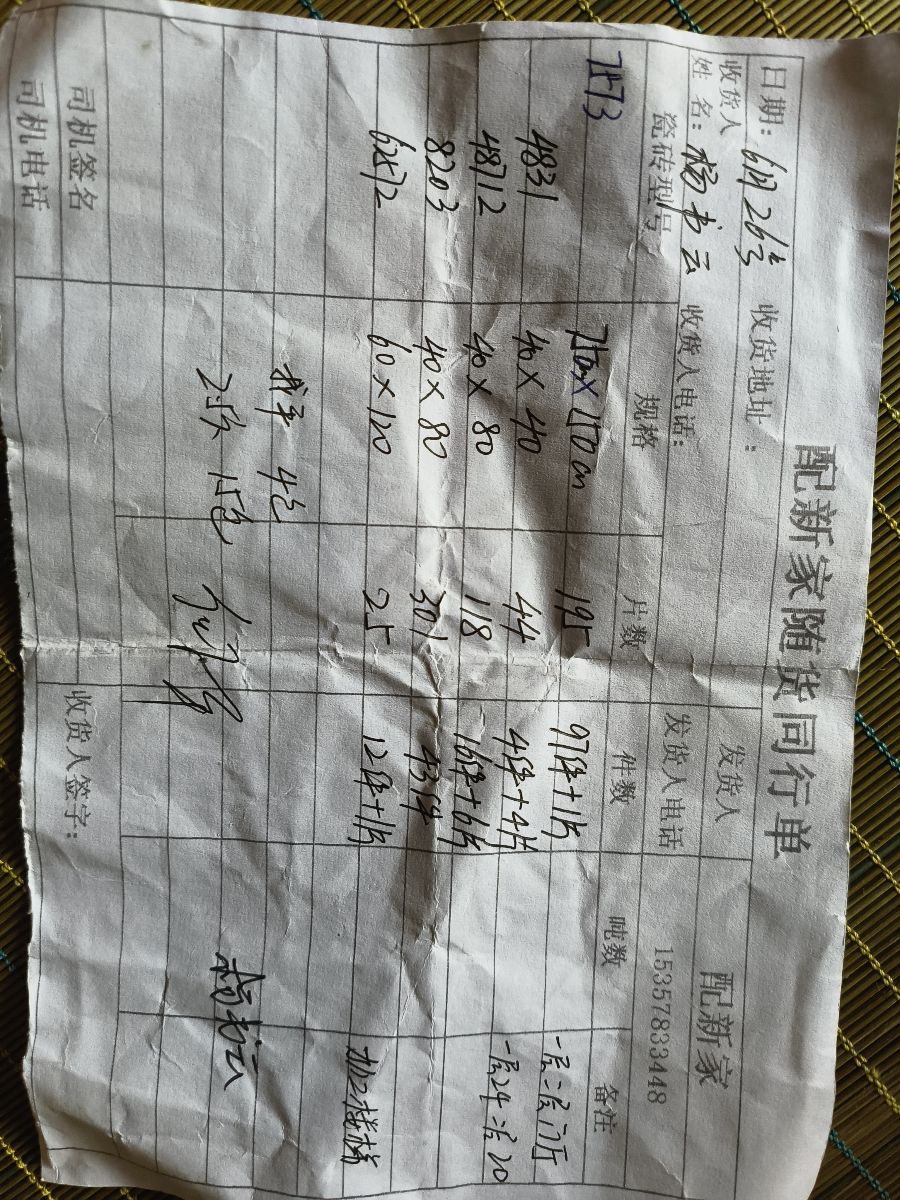 配新家随货同行单
日期：6月26号 收货地址： 发货人 配新家
收货人姓名：杨书云 收货人电话： 发货人电话 15357833448
瓷砖型号 规格 片数 件数 吨数 备注
7573 75cm×150cm 195 97件+1片 一层二层厅
4831 40×40 44 4件+4片
48712 40×80 118 16件+6片 一层24 二层20
8203 40×80 301 43件
62572 60×120 25 12件+1片 加2楼梯
4包
15包
杨书云
司机签名 收货人签字：
司机电话